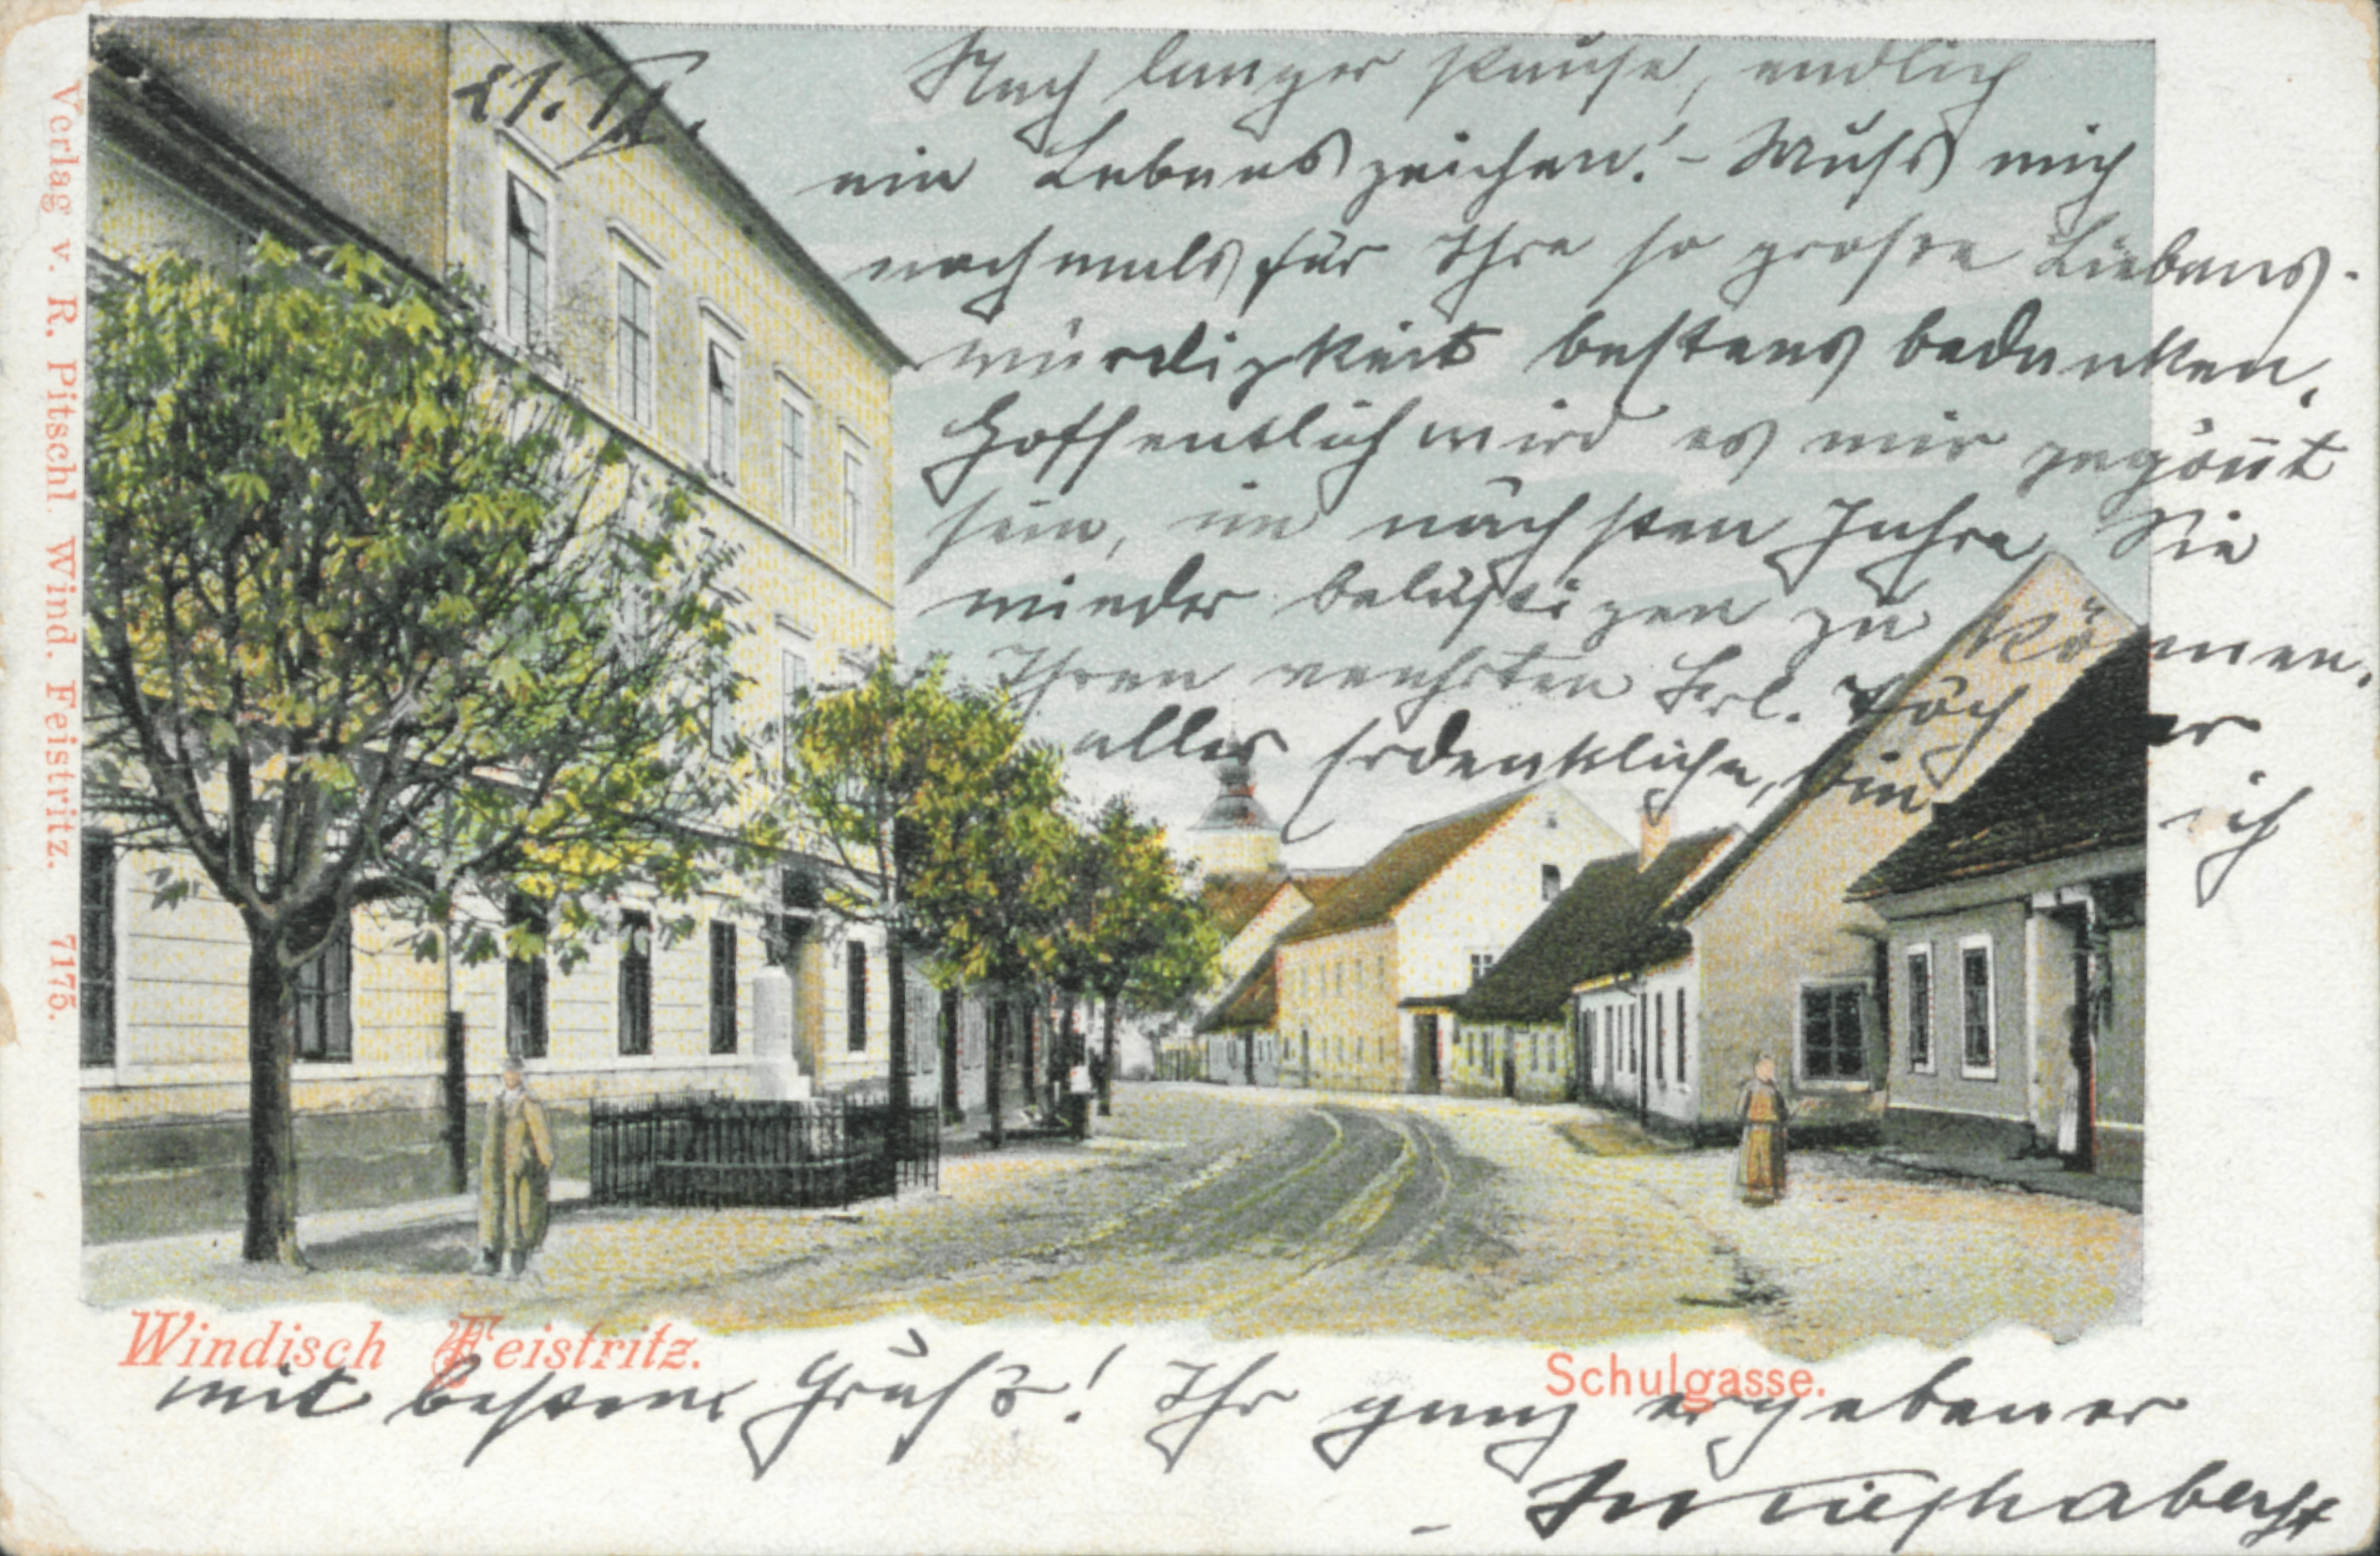 21. VI.
Nach langer Pause, endlich
ein Lebenszeichen! - Muss mich
nochmals für Ihre so große Liebens-
würdigkeit bestens bedanken,
Hoffentlich wird es mir gegön̄t
sein, im nächsten Jahre Sie
wieder belästigen zu können.
Ihren verehrten Frl. Töchter
alles Erdenkliche, bin ich
mit bestem Gruß! Ihr ganz ergebener
Windisch Feistritz.
Schulgasse.
Verlag v. R. Pitschl. Wind. Feistritz. 7175.